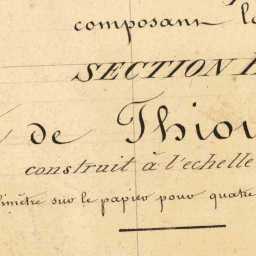 composant la
SECTION
de Thiou
construit à l'echelle
sur le papier pour quatre